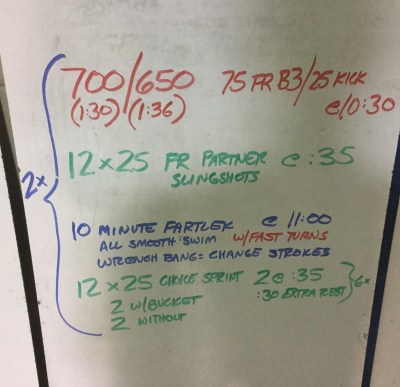 2x
700/650 75 FR B3/25 KICK
(1:30) (1:36) @/0:30
12x25 FR PARTNER @ :35
SLINGSHOTS
10 MINUTE FARTLEK @ 11:00
ALL SMOOTH SWIM W/FAST TURNS
WRENCH BANG = CHANGE STROKES
12x25 CHOICE SPRINT 2@ :35
2 W/BUCKET :30 EXTRA REST 6x
2 WITHOUT